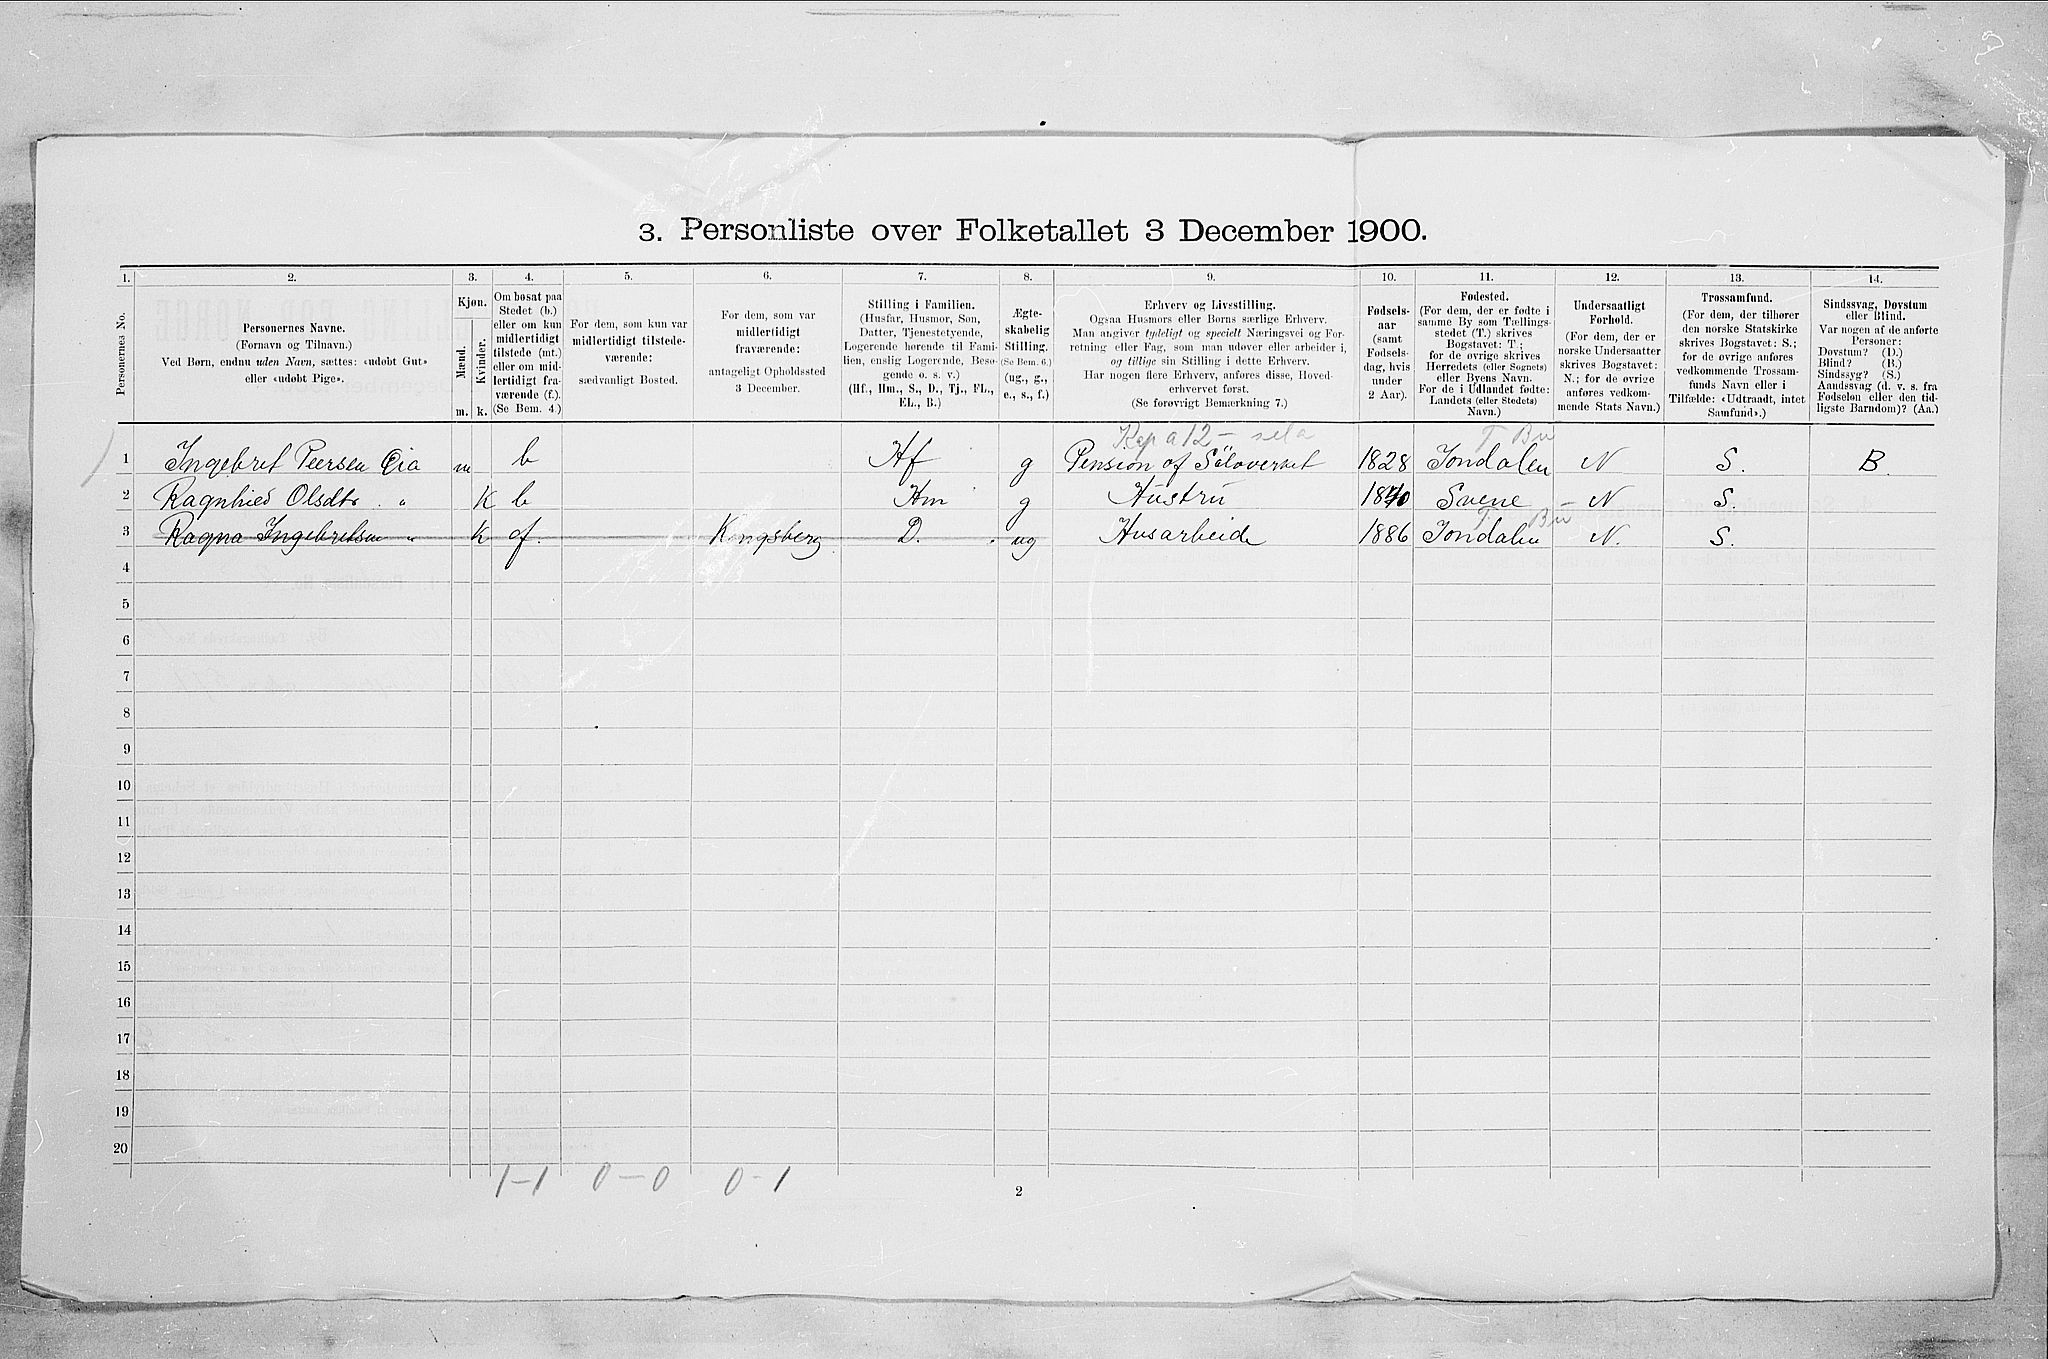 3. Personliste over Folketallet 3 December 1900.
1. 2. 3. 4. 5. 6. 7. 8. 9. 10. 11. 12. 13. 14.
Personernes No.
Personernes Navne.
(Fornavn og Tilnavn.)
Ved Børn, endnu uden Navn, sættes: «udøbt Gut»
eller «udøbt Pige».
Kjøn.
Mænd.
Kvinder.
m. k.
Om bosat paa
Stedet (b.)
eller om kun
midlertidigt
tilstede (mt.)
eller om mid-
lertidigt fra-
værende (f.).
(Se Bem. 4.)
For dem, som kun var
midlertidigt tilstede-
værende:
sædvanligt Bosted.
For dem, som var
midlertidigt
fraværende:
antageligt Opholdssted
3 December.
Stilling i Familien.
(Husfar, Husmor, Søn,
Datter, Tjenestetyende,
Logerende hørende til Fami-
lien, enslig Logerende, Besø-
gende o. s. v.)
(Hf., Hm., S., D., Tj., FL.,
EL., B.)
Ægte-
skabelig
Stilling.
(Se Bem. 6.)
(ug., g.,
e., s., f.)
Erhverv og Livsstilling.
Ogsaa Husmors eller Børns særlige Erhverv.
Man angiver tydeligt og specielt Næringsvei og For-
retning eller Fag, som man udøver eller arbeider i,
og tillige sin Stilling i dette Erhverv.
Har nogen flere Erhverv, anføres disse, Hoved-
erhvervet først.
(Se forøvrigt Bemærkning 7.)
Fødsels-
aar
(samt
Fødsels-
dag, hvis
under
2 Aar).
Fødested.
(For dem, der er fødte i
samme By som Tællings-
stedet (T.) skrives
Bogstavet: T.;
for de øvrige skrives
Herredets (eller Sognets)
eller Byens Navn.
For de i Udlandet fødte:
Landets (eller Stedets)
Navn.)
Undersaatligt
Forhold.
(For dem, der er
norske Undersaatter
skrives Bogstavet:
N.; for de øvrige
anføres vedkom-
mende Stats Navn.)
Trossamfund.
(For dem, der tilhører
den norske Statskirke
skrives Bogstavet: S.;
for de øvrige anføres
vedkommende Trossam-
funds Navn eller i
Tilfælde: «Udtraadt, intet
Samfund».)
Sindssvag, Døvstum
eller Blind.
Var nogen af de anførte
Personer:
Døvstum? (D.)
Blind? (B.)
Sindssyg? (S.)
Aandssvag (d. v. s. fra
Fødselen eller den tid-
ligste Barndom)? (Aa.)
T Bu
1 Ingebret Peersen Eia m b Hf g Pension af Söloverket 1828 Jondalen N S. B.
2 Ragnhied Olsdtr. " K b Hm g Hustru 1840 Svene N S.
T Bu
3 Ragna Ingebretsen " K f. Kongsberg D. ug Husarbeide 1886 Jondalen N. S.
4
5
6
7
8
9
10
11
12
13
14
15
16
17
18
19
20
1-1 0-0 0-1
2